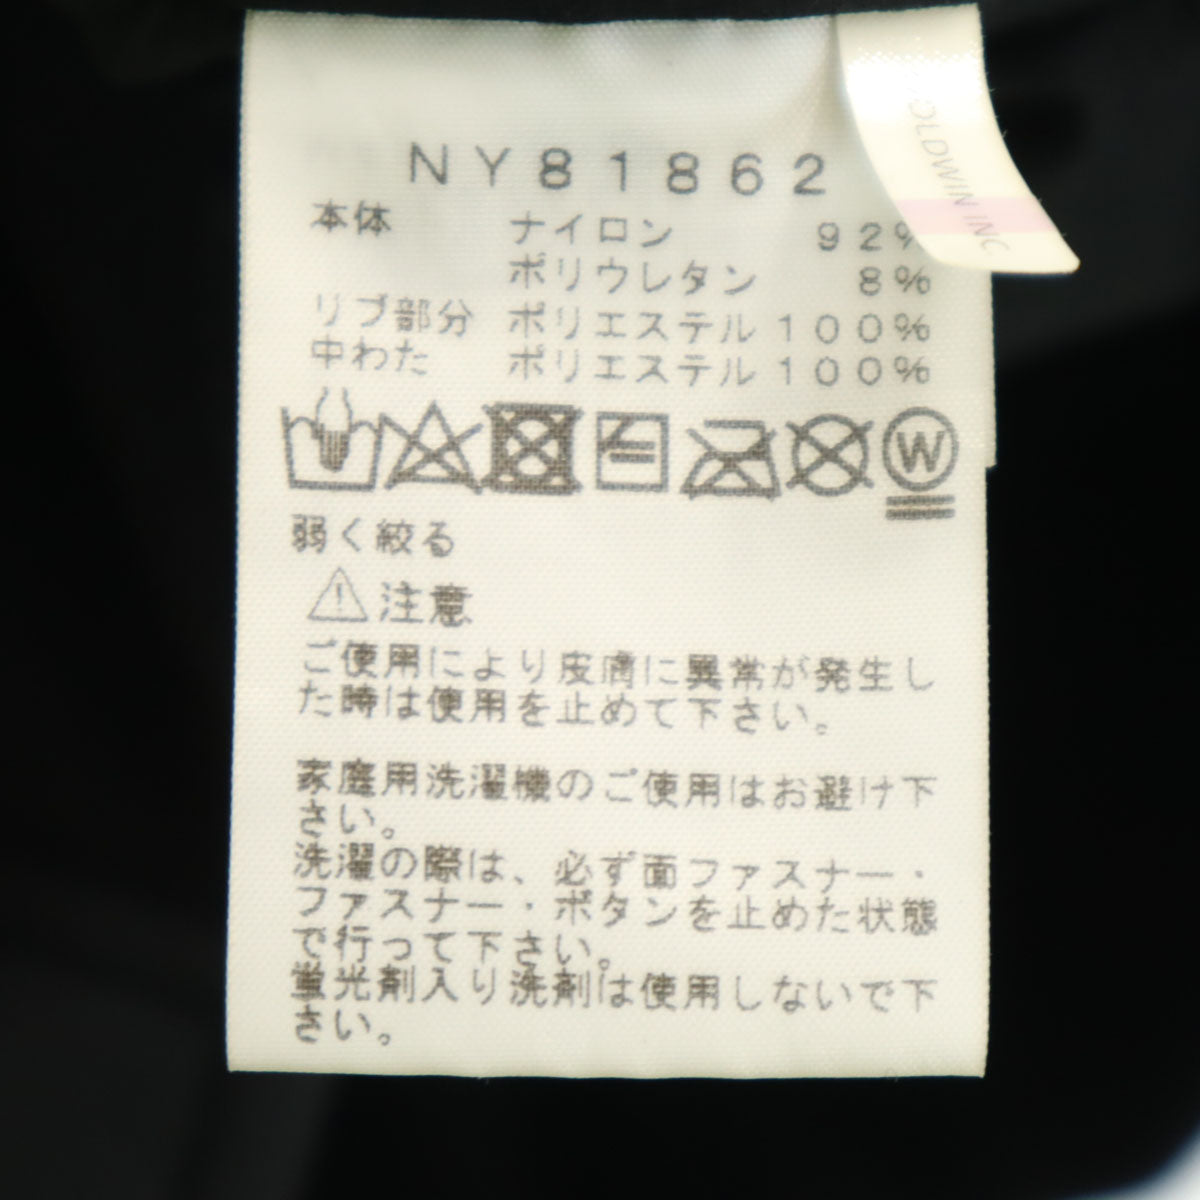 NY81862
本体 ナイロン 92%
ポリウレタン 8%
リブ部分 ポリエステル 100%
中わた ポリエステル 100%
W
弱く絞る
注意
ご使用により皮膚に異常が発生し
た時は使用を止めて下さい。
家庭用洗濯機のご使用はお避け下
さい。
洗濯の際は、必ず面ファスナー・
ファスナー・ボタンを止めた状態
で行って下さい。
蛍光剤入り洗剤は使用しないで下
さい。